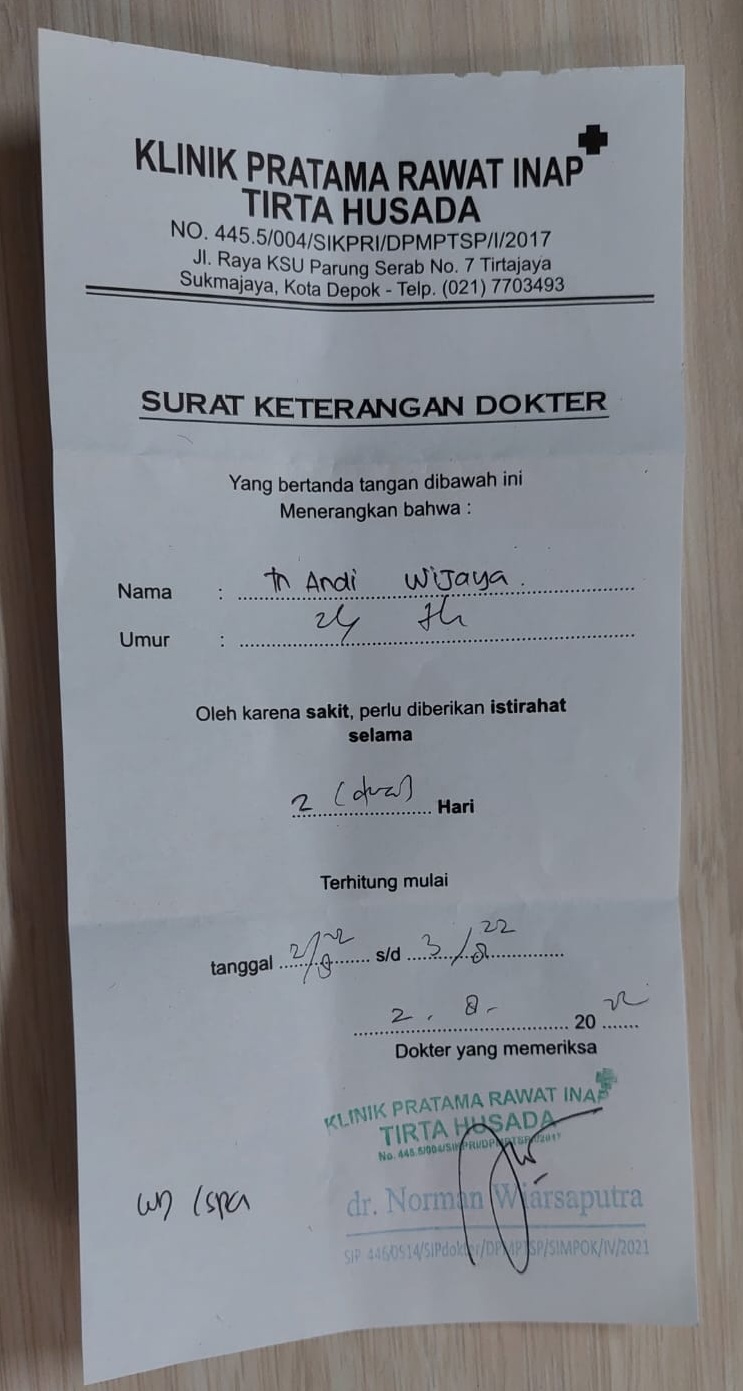 KLINIK PRATAMA RAWAT INAP
TIRTA HUSADA
NO. 445.5/004/SIKPRI/DPMPTSP/I/2017
Jl. Raya KSU Parung Serab No. 7 Tirtajaya
Sukmajaya, Kota Depok - Telp. (021) 7703493
SURAT KETERANGAN DOKTER
Yang bertanda tangan dibawah ini
Menerangkan bahwa :
Nama : Tn Andi Wijaya
Umur : 24 th
Oleh karena sakit, perlu diberikan istirahat
selama
2 (dua) Hari
Terhitung mulai
tanggal 2/8 22 s/d 3/8 22
2 . 8 - 20 22
Dokter yang memeriksa
KLINIK PRATAMA RAWAT INAP
TIRTA HUSADA
No. 445.5/004/SIKPRI/DPMPTSP/I/2017
dr. Norman Wiarsaputra
SIP 446/0514/SIPdokter/DPMPTSP/SIMPOK/IV/2021